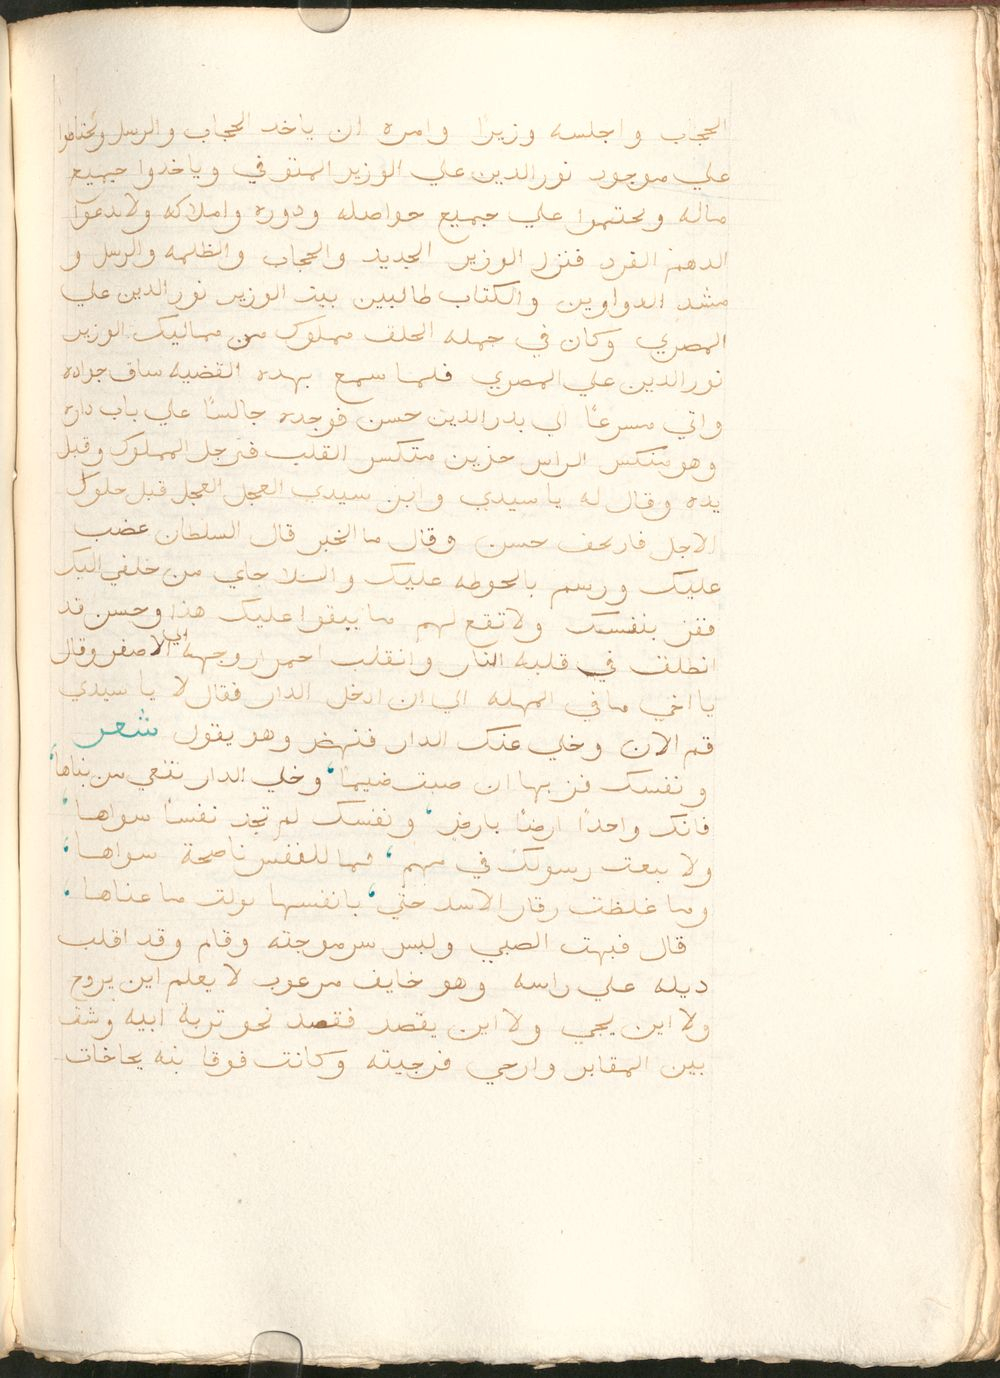 الحجاب واجلسه وزيرًا وامره ان ياخد الحجاب والرسل ويحتاطوا
علي موجود نور الدين علي الوزير المتوفي وياخدوا جميع
ماله ويختموا علي جميع حواصله ودوره واملاكه ولا يدعوا
الدهم الفرد فنزل الوزير الجديد والحجاب والظلمه والرسل و
مشد الدواوين والكتاب طالبين بيت الوزير نور الدين علي
المصري وكان في جمله الخلق مملوك من مماليك الوزير
نور الدين علي المصري فلما سمع بهده القضيه ساق جواده
واتي مسرعًا الي بدر الدين حسن فوجده جالسًا علي باب داره
وهو منكس الراس حزين منكسر القلب فترجل المملوك وقبل
يده وقال له يا سيدي وابن سيدي العجل العجل قبل حلول
الاجل فارتجف حسن وقال ما الخبر قال السلطان غضب
عليك ورسم بالحوطه عليك والبلا جاي من خلفي اليك
ففز بنفسك ولا تقع لهم ما يبقوا عليك هذا وحسن قد
انطلق في قلبه النار وانقلب احمرار وجهه الي الاصفر وقال
يا اخي ما في المهله الي ان ادخل الدار فقال لا يا سيدي
قم الان وخلي عنك الدار فنهض وهو يقول شعر
ونفسك فز بها ان صبت ضيمًا، وخلي الدار تنعي من بناها،
فانك واحدًا ارضًا بارض، ونفسك لم تجد نفسًا سواها،
ولا تبعت رسولك في مهم، فما للنفس ناصحة سواها،
وما غلظت رقاب الاسد حتي، بانفسها تولت ما عناها،
قال فبهت الصبي ولبس سرموجته وقام وقد اقلب
ديله علي راسه وهو خايف مرعوب لا يعلم اين يروح
ولا اين يجي ولا اين يقصد فقصد نحو تربة ابيه وشق
بين المقابر وارخي فرجيته وكانت فوقا بنه